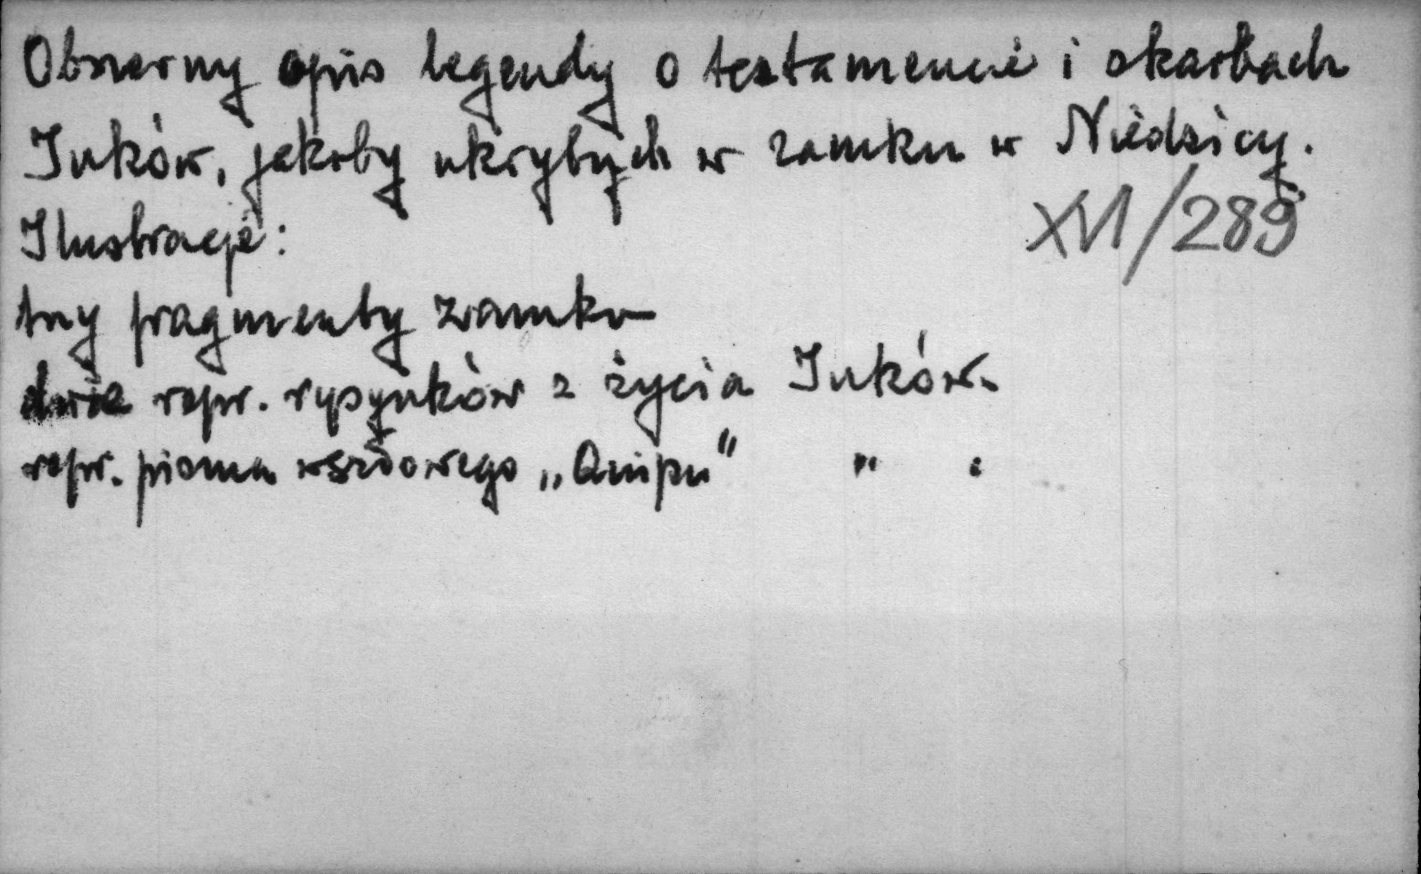 Obszerny opis legendy o testamencie i skarbach
Inków, jakoby ukrytych w zamku w Niedzicy.
XVI/289
Ilustracje:
trzy fragmenty zamku
dwie repr. rysunków z życia Inków.
repr. pisma węzłowego „Quipu" " .